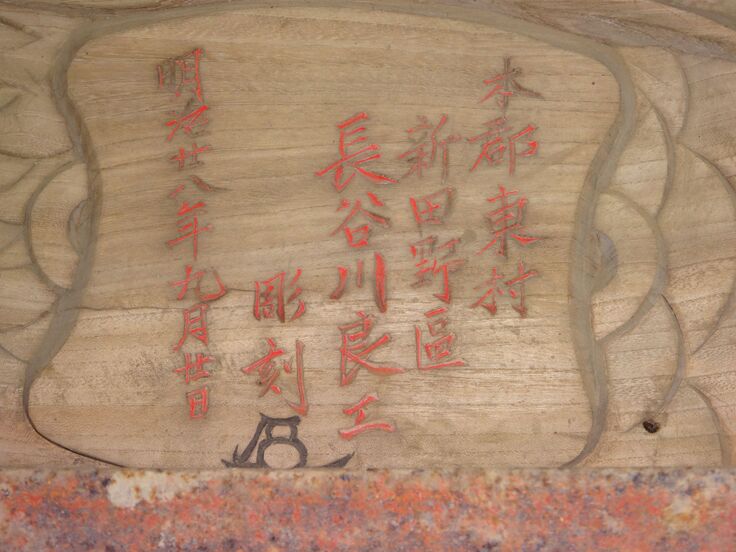 本郡東村
新田野區
長谷川良工
彫刻
明治廿八年九月廿日